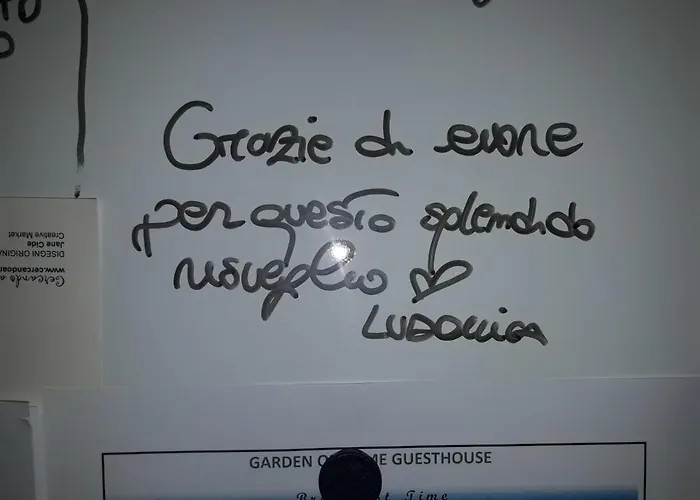 Grazie di cuore
per questo splendido
risveglio
LUDOVICA
GARDEN O ME GUESTHOUSE
Time
Creative Market
Jane Cide
DISEGNI ORIGINA
www.cercandoar
Cercando a